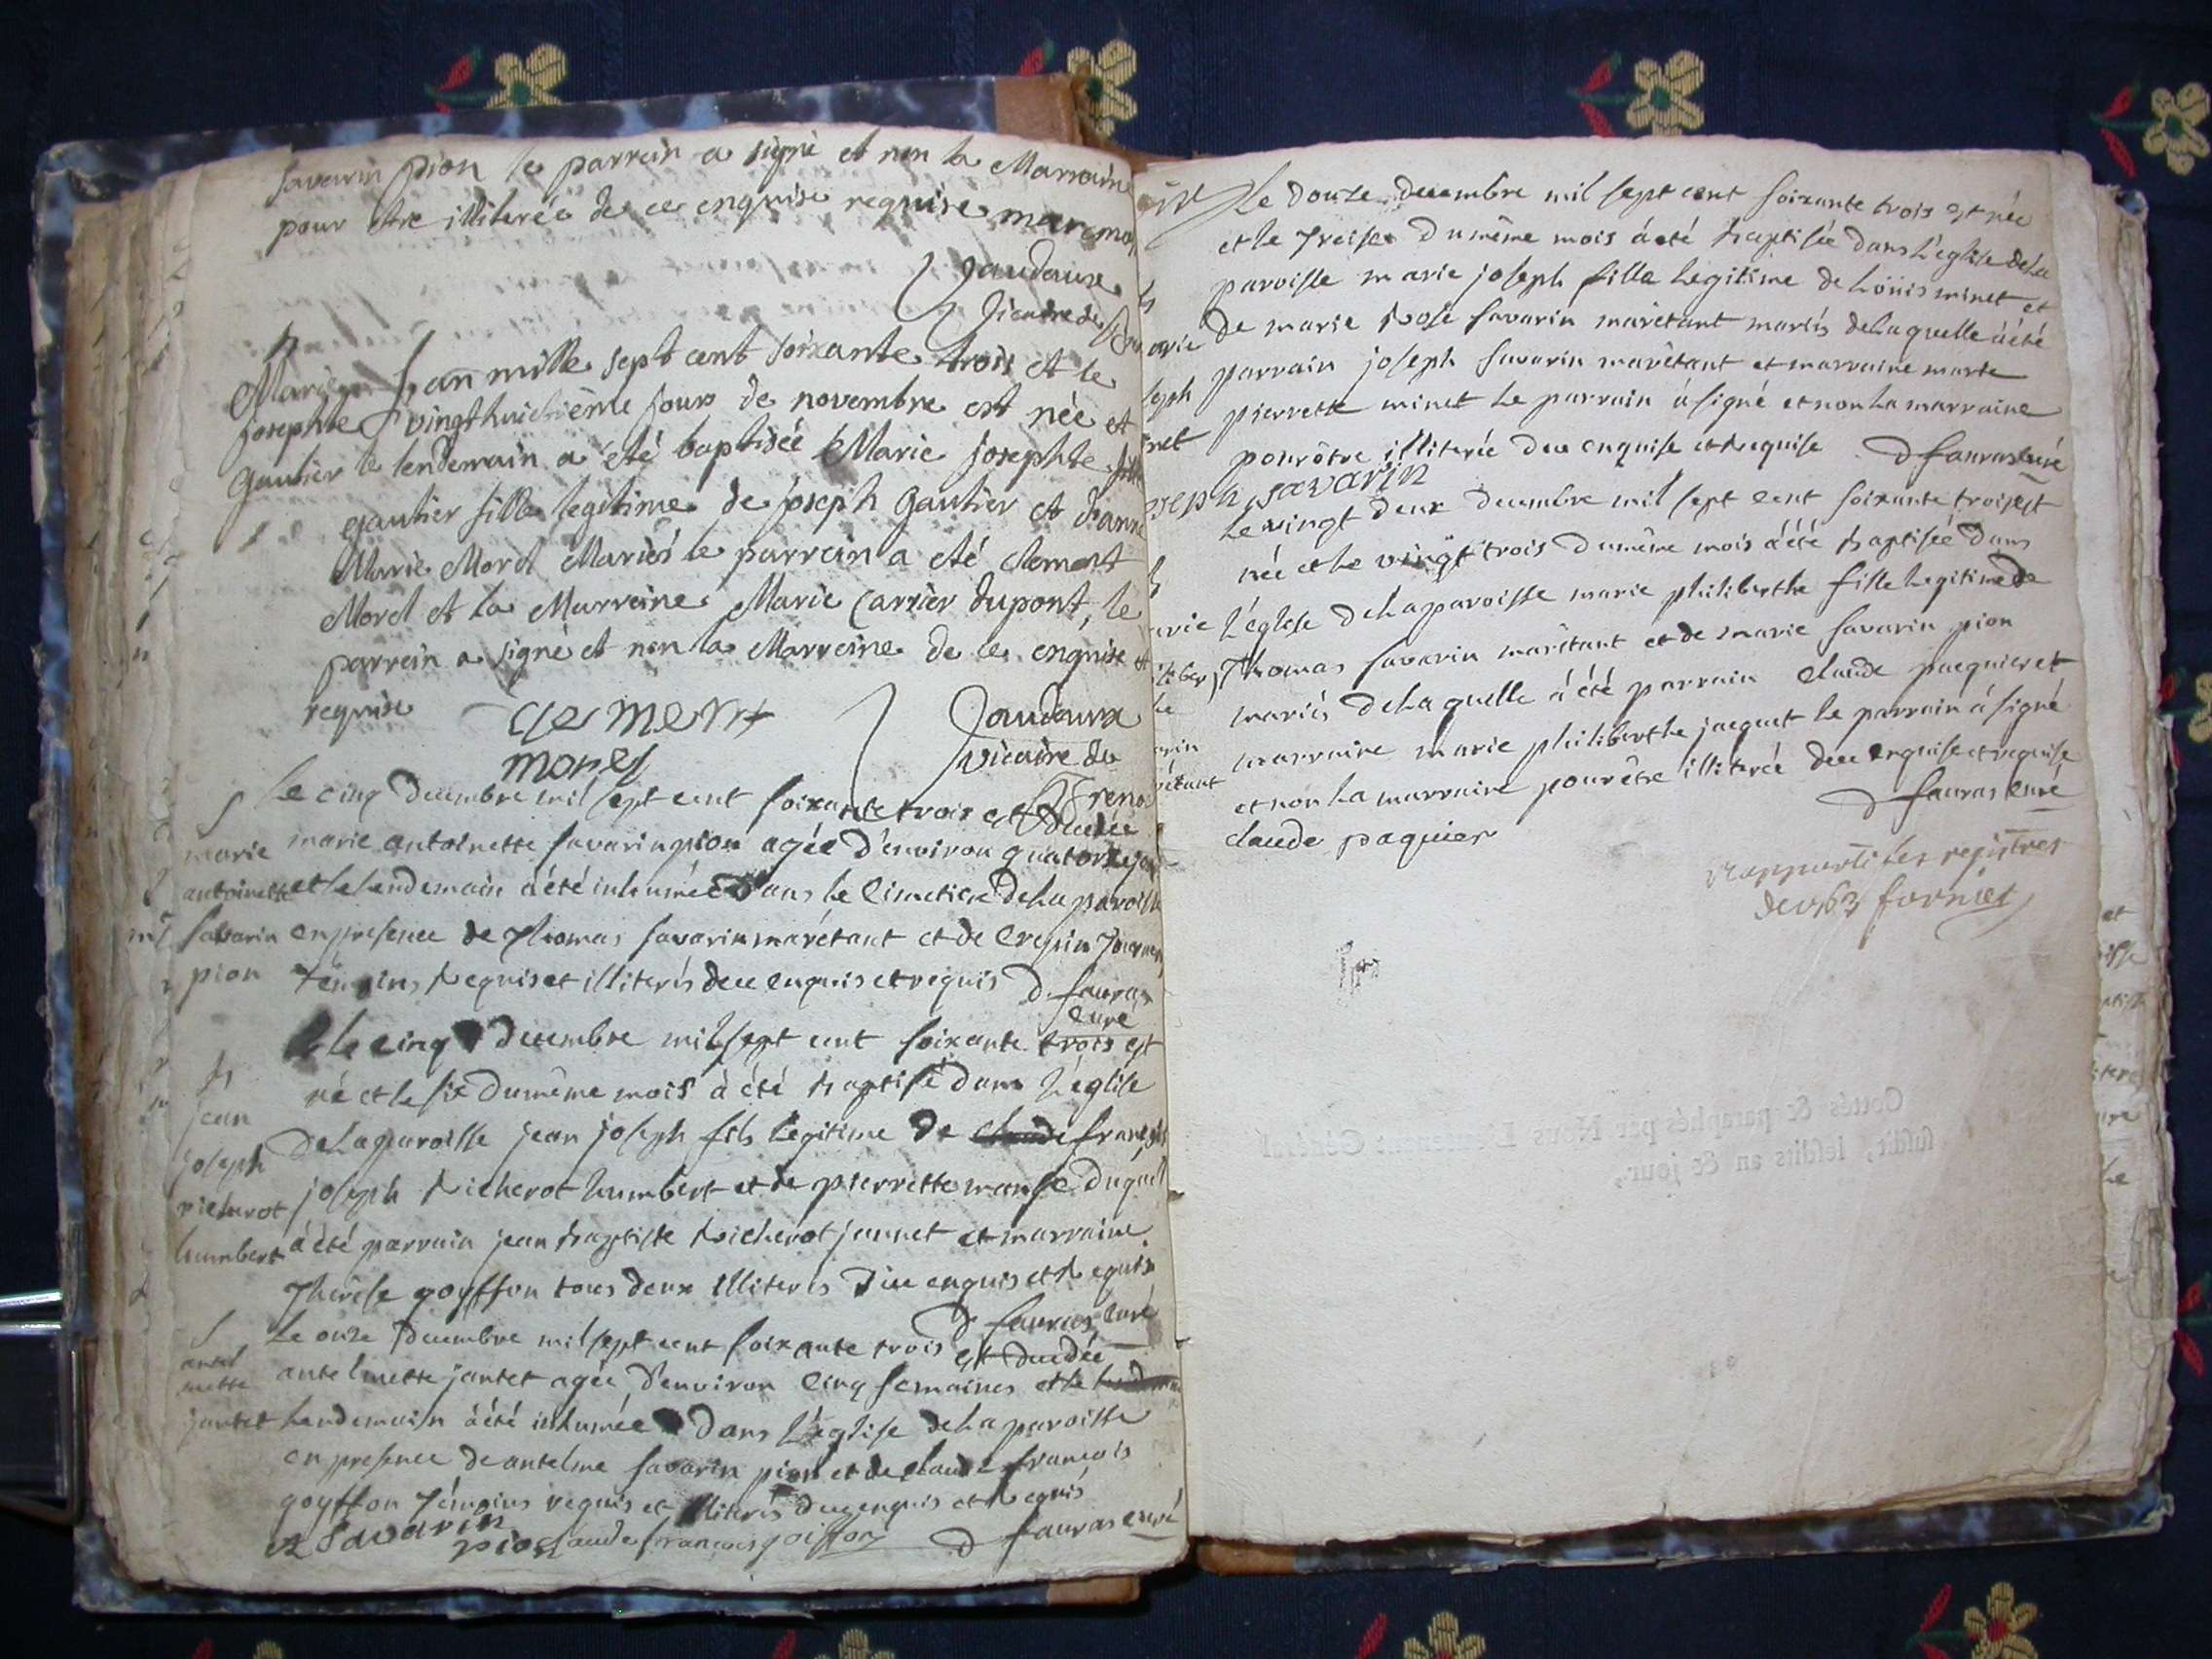 Savarin pion le parrein a signé et non la Marraine
pour être illiterée de ce enquise requise
Jaudaux
L'an mille sept cent soixante trois et le
Marie vingthuictième jour de novembre est née et
josephte
Gautier le lendemain a été baptisée Marie josephte
gautier fille legitime de joseph Gautier et d'anne
Marie Morel Mariés le parrein a eté Clement
Morel et la Marreine Marie Carrier dupont, le
parrein a signé et non la Marreine de ce enquise et
requise
clement
morel
Jaudaux
vicaire de
le cinq decembre mil sept cent soixante trois est decedée
marie marie antoinette savarin pion agée d'environ quatorze
antoinette et le lendemain à été inhumée dans le cimetiere de la paroisse
savarin en presence de thomas savarin marêtant et de crepin
pion témoins requis et illiterés de ce enquis et requis D fauras
curé
le cinq decembre mil sept cent soixante trois est
né et le six du même mois à été baptisé dans l'église
jean de la paroisse jean joseph fils legitime de claude françois
joseph joseph richerot humbert et de pierrette duquel
richerot à été parrain jean baptiste richerot jannet et marraine
humbert therese goyffon tous deux illiterés de ce enquis et requis
D fauras curé
le onze decembre mil sept cent soixante trois est decedée
antel
mette antelmette jantet agée d'environ cinq semaines et le
jantet lendemain à été inhumée dans l'église de la paroisse
en presence de antelme savarin pion et de claude françois
goyffon témoins requis et illiterés de ce enquis et requis
a savarin
pion claude françois goiffon D fauras curé
Le douze decembre mil sept cent soixante trois est née
et le treise du même mois à été baptisée dans l'église de la
paroisse marie joseph fille legitime de loüis minet et
de marie rose savarin marêtant mariés de laquelle à été
parrain joseph savarin marêtant et marraine marie
pierrette minet le parrain à signé et non la marraine
pour être illiterée de ce enquise et requise D fauras curé
joseph savarin
le vingt deux decembre mil sept cent soixante trois est
née et le vingt trois du même mois à été baptisée dans
l'église de la paroisse marie philiberthe fille legitime de
thomas savarin marêtant et de marie savarin pion
mariés de laquelle à été parrain claude pacquier et
marraine marie philiberthe jacquet le parrain à signé
et non la marraine pour être illiterée de ce enquise et requise
D fauras curé
claude paquier
rapporté les registres
de 1763 fornier
Cottés & paraphés par Nous
susdit, lesdits an & jour.